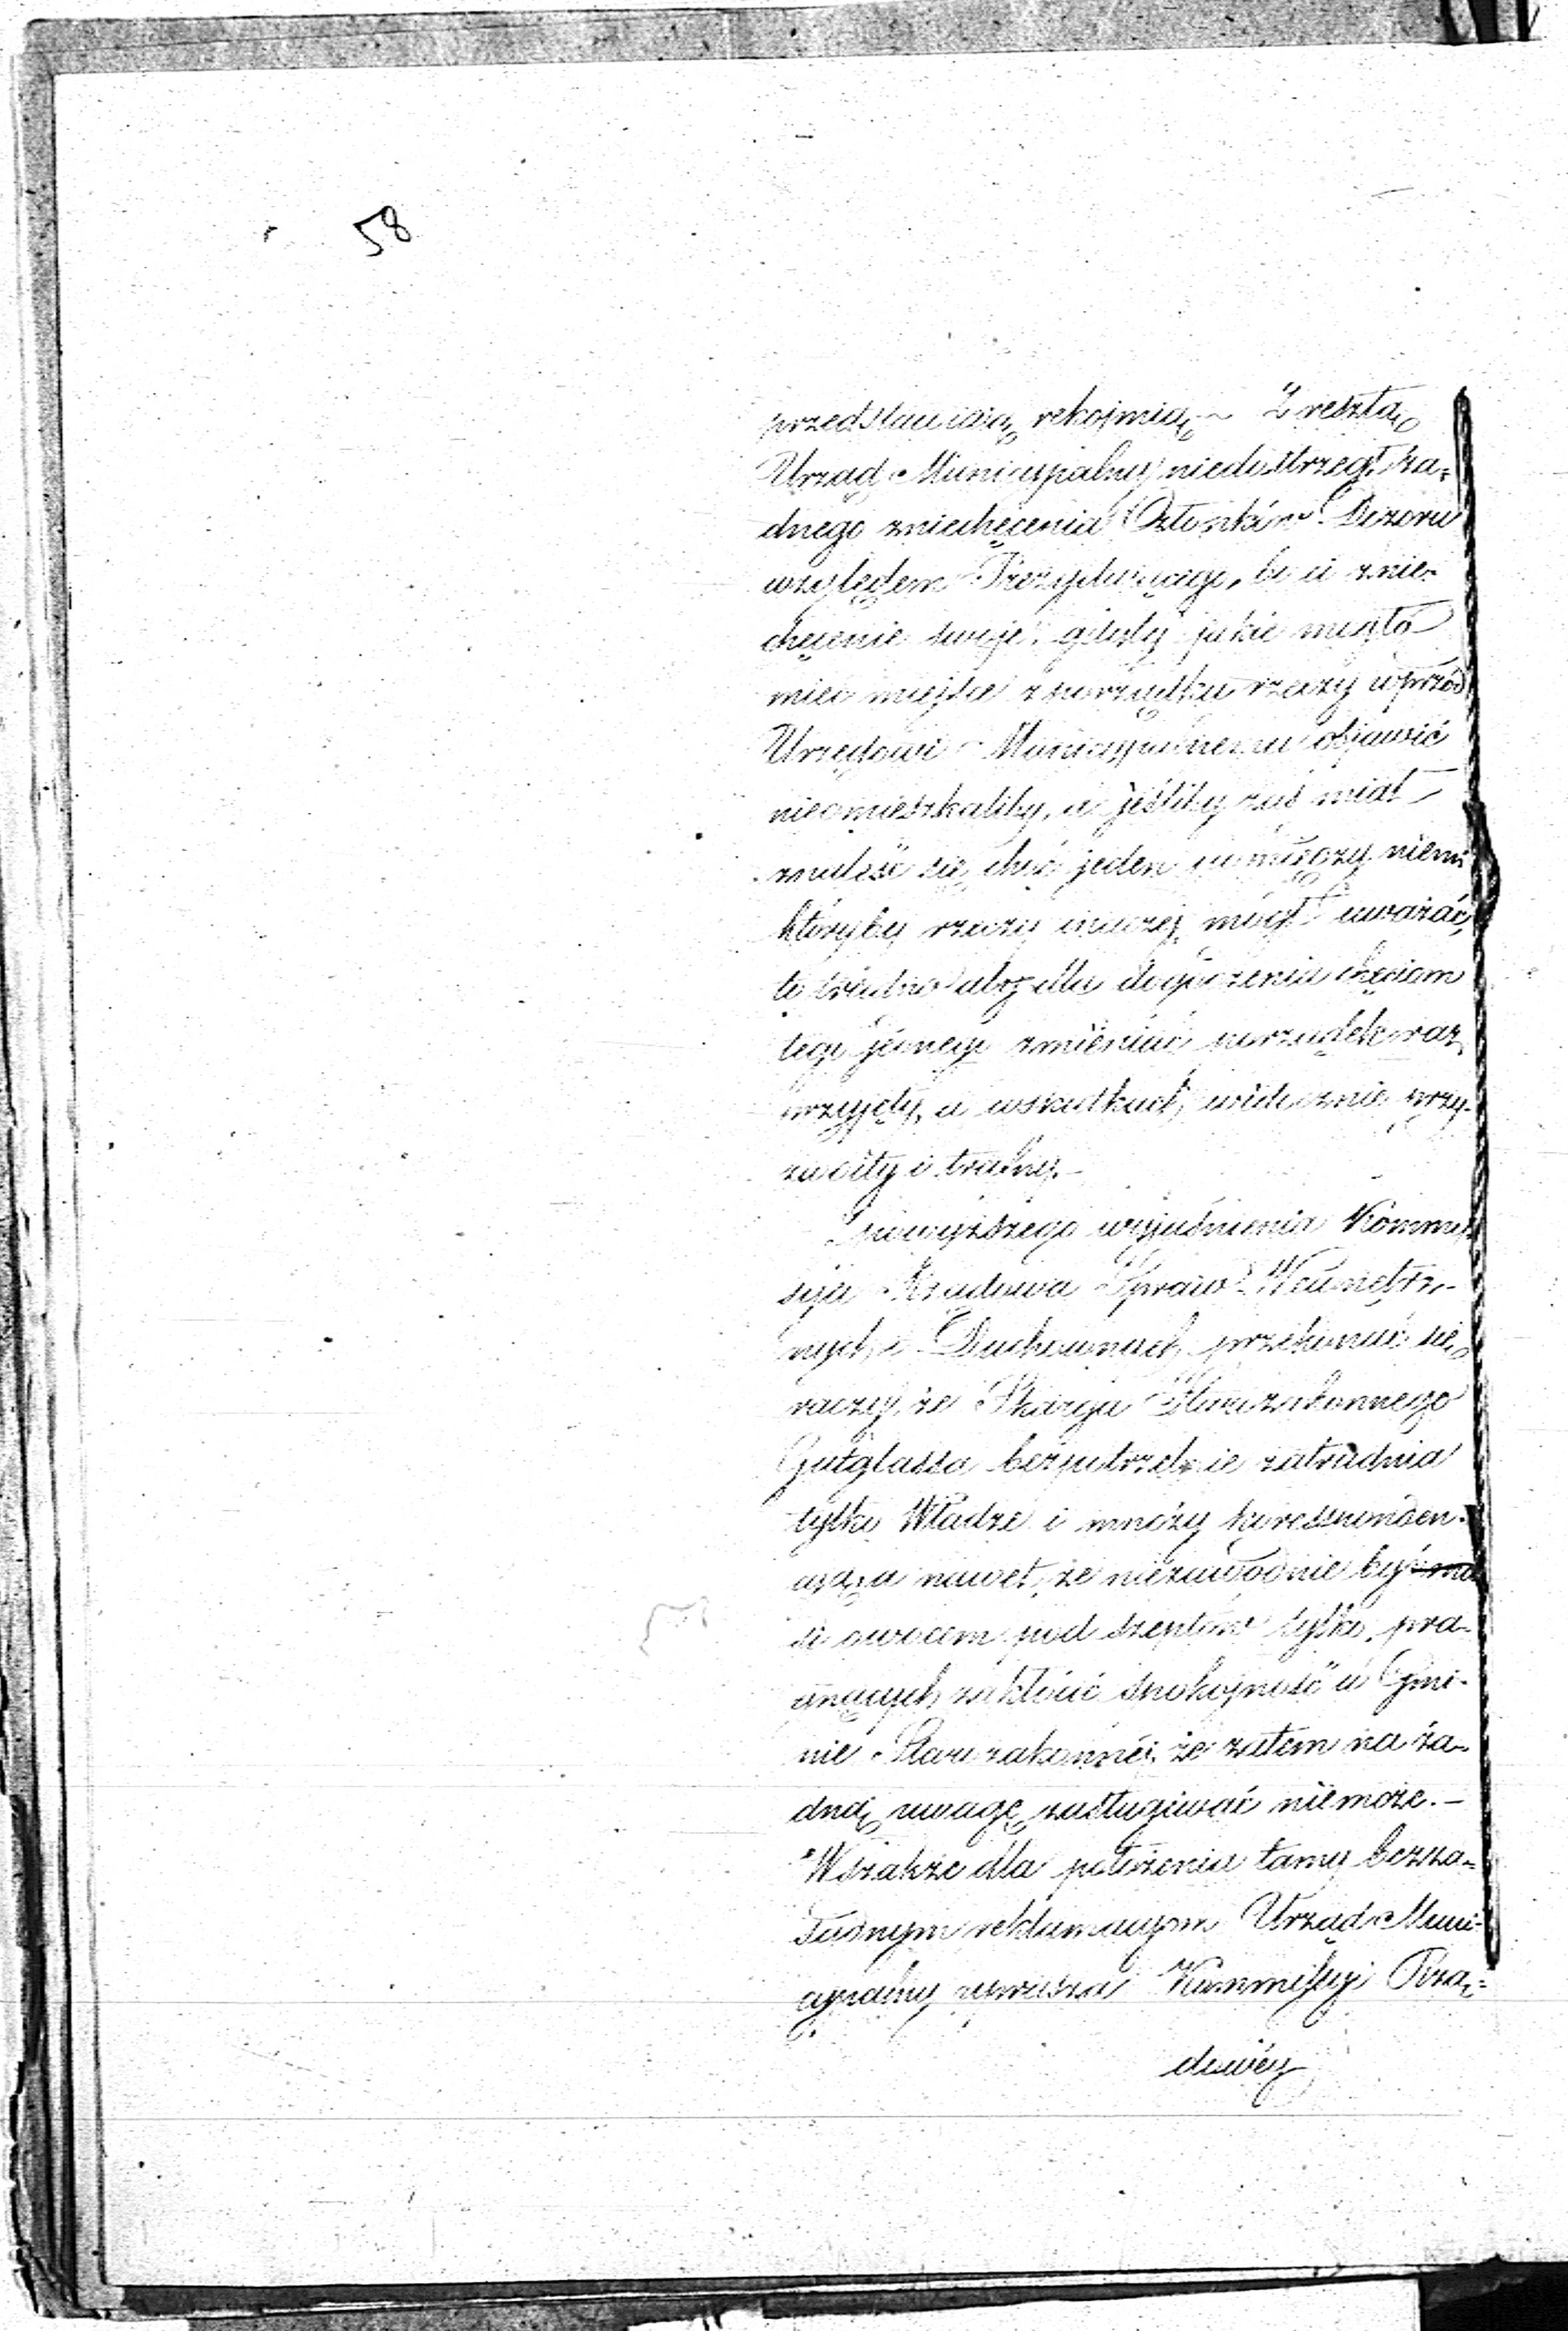 58
przedstawiają rekojmią. – Z resztą
Urząd Municypalny niedostrzegł ża=
dnego zniechęcenia Członków Dozoru
względem Prezydującego, bo ci znie-
chęcenie swoje, gdyby jakie miało
mieć miejsce z porządku rzeczy wprzód
Urzędowi Municypalnemu objawić
nieomieszkaliby, a jeśliby zaś miał
znaleść się choć jeden pomiędzy niemi
któryby rzeczy inaczej mógł uważać,
to trudno aby dla dogodzenia chęciom
tego jednego zmieniać porządek raz
przyjęty, a w skutkach widocznie przy-
zwoity i trafny. –
Z powyższego wyjaśnienia Kommis
syja Rządowa Spraw Wewnętrz-
nych i Duchownych przekonać się
raczy, że Skarga Starozakonnego
Gutglassa bezpotrzebnie zatrudnia
tylko Władze i mnoży korresponden-
cyją a nawet, że niezawodnie być mu
si owocem podszeptów tylko, pra-
gnących zakłócić spokojność w Gmi-
nie Starozakonnéj, że zatem na ża-
dną uwagę zasługiwać niemoże. –
Wszakże dla położenia tamy bezza-
sadnym reklamacyom Urząd Muni-
cypalny uprasza Kommissyi Rzą=
dowéj